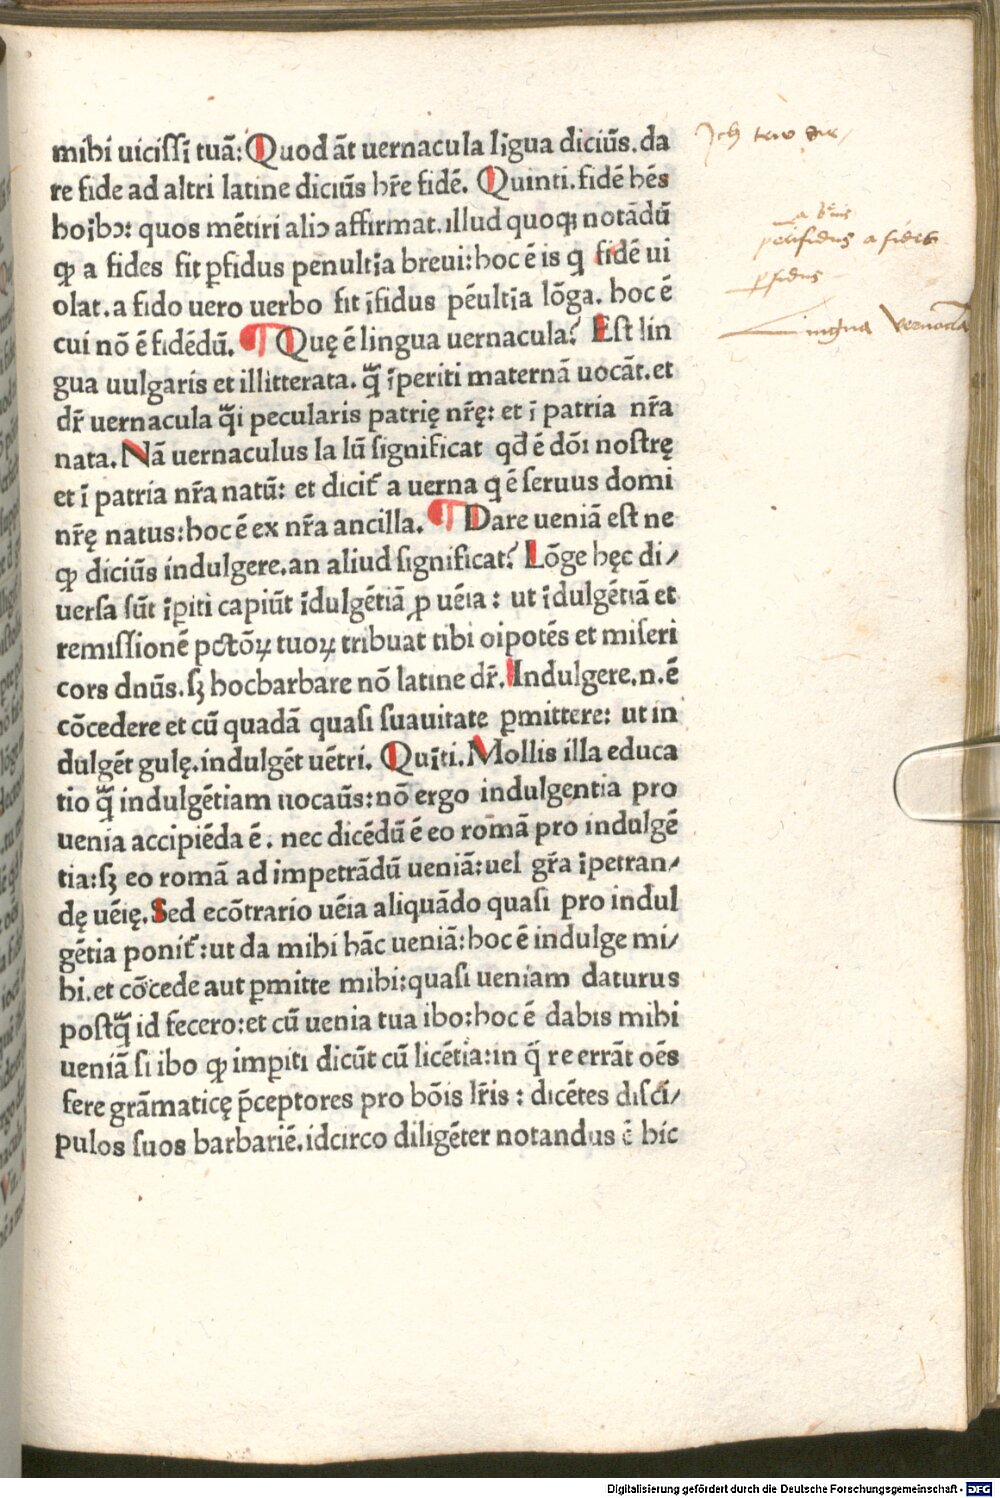 mihi uicissī tuā: Quod āt uernacula līgua diciūs. da
re fidē ad altri latine diciūs hr̄e fidē. Quinti. fidē hēs
hoībꝰ: quos mētiri aliꝰ affirmat. illud quoqꝫ notādū
ꝙ a fides fit ꝑfidus penultīa breui: hoc ē is q fidē ui
olat. a fido uero uerbo fit īfidus pēultīa lōga. hoc ē
cui nō ē fidēdū. ¶ Quę ē lingua uernacula? Est lin
gua uulgaris et illitterata. q̄̄ īperiti maternā uocāt. et
dr̄ uernacula q̄̄i pecularis patrię nr̄ę: et ī patria nr̄a
nata. Nā uernaculus la lū significat qd̄ ē dōi nostrę
et ī patria nr̄a natū: et dicit̄ a uerna q ē seruus domi
nr̄ę natus: hoc ē ex nr̄a ancilla. ¶ Dare ueniā est ne
ꝙ diciūs indulgere. an aliud significat? Lōge hęc di/
uersa sūt īꝑiti capiūt īdulgētiā ꝓ uēia: ut īdulgētiā et
remissionē pctōꝝ tuoꝝ tribuat tibi oīpotēs et miseri
cors dnūs. sꝫ hocbarbare nō latine dr̄. Indulgere. n. ē
cōcedere et cū quadā quasi suauitate ꝑmittere: ut in
dulgēt gulę. indulgēt uētri. Quīti. Mollis illa educa
tio q̄̄ indulgētiam uocaūs: nō ergo indulgentia pro
uenia accipiēda ē. nec dicēdū ē eo romā pro indulgē
tia: sꝫ eo romā ad impetrādū ueniā: uel gr̄a īpetran/
dę uēię. Sed ecōtrario uēia aliquādo quasi pro indul
gētia ponit̄: ut da mihi hāc ueniā: hoc ē indulge mi/
hi. et cōcede aut ꝑmitte mihi: quasi ueniam daturus
postq̄̄ id fecero: et cū uenia tua ibo: hoc ē dabis mihi
ueniā si ibo ꝙ imꝑiti dicūt cū licētia: in q̄ re errāt oēs
fere grāmaticę p̄ceptores pro bōis lr̄is: dicētes discī/
pulos suos barbariē. idcirco diligēter notandus ē hic
Ich trw dir
perifidus a fides
ꝑfidus
Lingua Vernacla
Digitalisierung gefördert durch die Deutsche Forschungsgemeinschaft - DFG